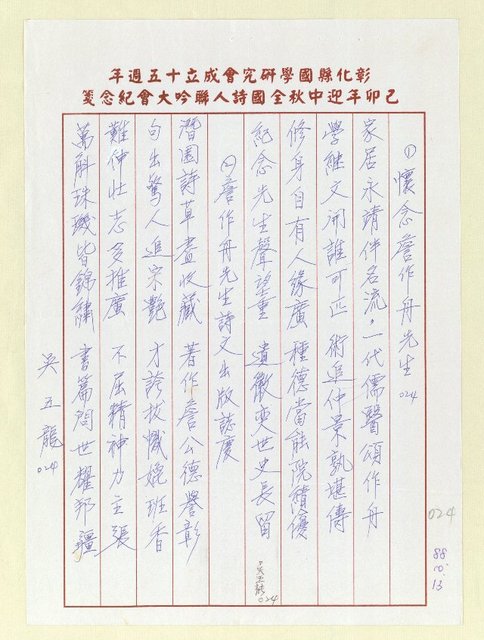 彰化縣國學研究會成立十五週年
己卯年迎中秋全國詩人聯吟大會紀念箋
①懷念詹作舟先生 024
家居永靖伴名流，一代儒醫頌作舟
學繼文開誰可匹 術追仲景孰堪儔
修身自有人緣廣 種德當能院積優
紀念先生聲望重 遺徽奕世史長留
②詹作舟先生詩文出版誌慶
潛園詩草盡收藏 著作詹公德譽彰
句出驚人追宋艷 才誇拔幟媲班香
難伸壯志多推廣 不屈精神力主張
萬斛珠璣皆錦繡 書篇問世耀邦疆
吳五龍 024
吳五龍 024
024
88.10.13